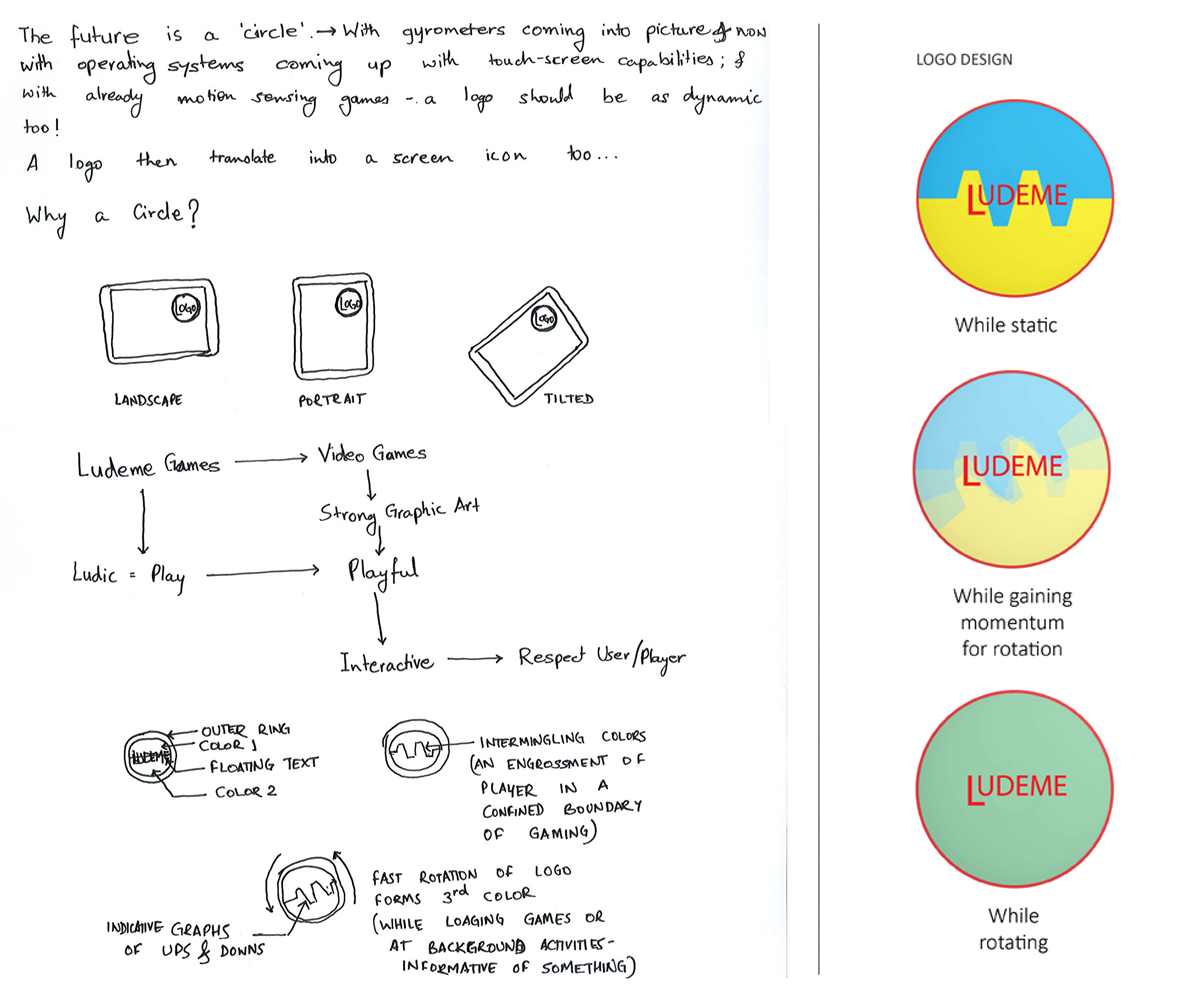 The future is a 'circle'. → With gyrometers coming into picture & now
with operating systems coming up with touch-screen capabilities; &
with already motion sensing games -. a logo should be as dynamic
too!
A logo then translate into a screen icon too...
Why a Circle?
LOGO
LOGO
LOGO
LANDSCAPE
PORTRAIT
TILTED
Ludeme Games → Video Games
Strong Graphic Art
Ludic = Play → Playful
Interactive → Respect User/Player
OUTER RING
COLOR 1
LUDEME
FLOATING TEXT
COLOR 2
INTERMINGLING COLORS
(AN ENGROSSMENT OF
PLAYER IN A
CONFINED BOUNDARY
OF GAMING)
FAST ROTATION OF LOGO
FORMS 3rd COLOR
(WHILE LOAGING GAMES OR
AT BACKGROUND ACTIVITIES-
INFORMATIVE OF SOMETHING)
INDICATIVE GRAPHS
OF UPS & DOWNS
LOGO DESIGN
LUDEME
While static
LUDEME
While gaining
momentum
for rotation
LUDEME
While
rotating